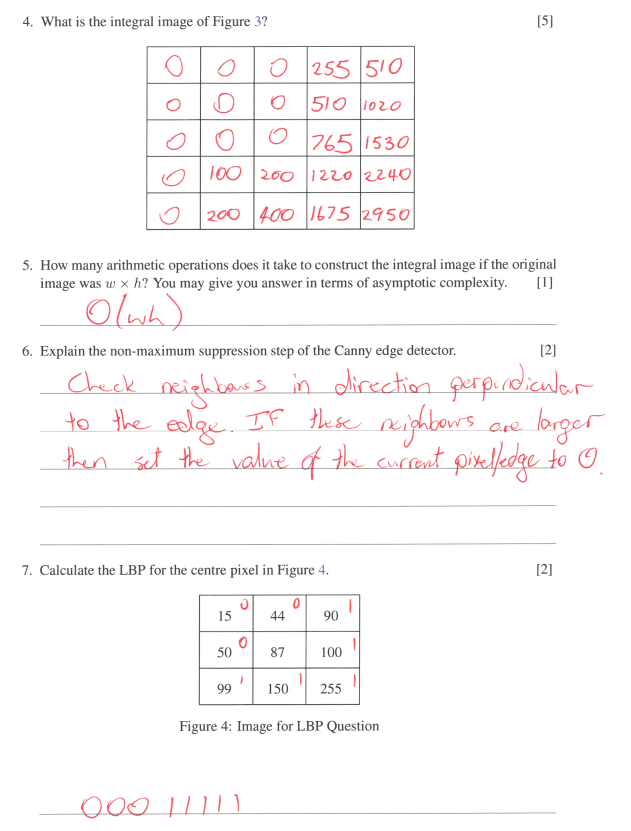 4. What is the integral image of Figure 3? [5]
0 0 0 255 510
0 0 0 510 1020
0 0 0 765 1530
0 100 200 1220 2240
0 200 400 1675 2950
5. How many arithmetic operations does it take to construct the integral image if the original
image was w × h? You may give you answer in terms of asymptotic complexity. [1]
O(wh)
6. Explain the non-maximum suppression step of the Canny edge detector. [2]
Check neighbours in direction perpendicular
to the edge. IF these neighbours are larger
then set the value of the current pixel/edge to 0.
7. Calculate the LBP for the centre pixel in Figure 4. [2]
15 0 44 0 90 1
50 0 87 100 1
99 1 150 1 255 1
Figure 4: Image for LBP Question
000 11111